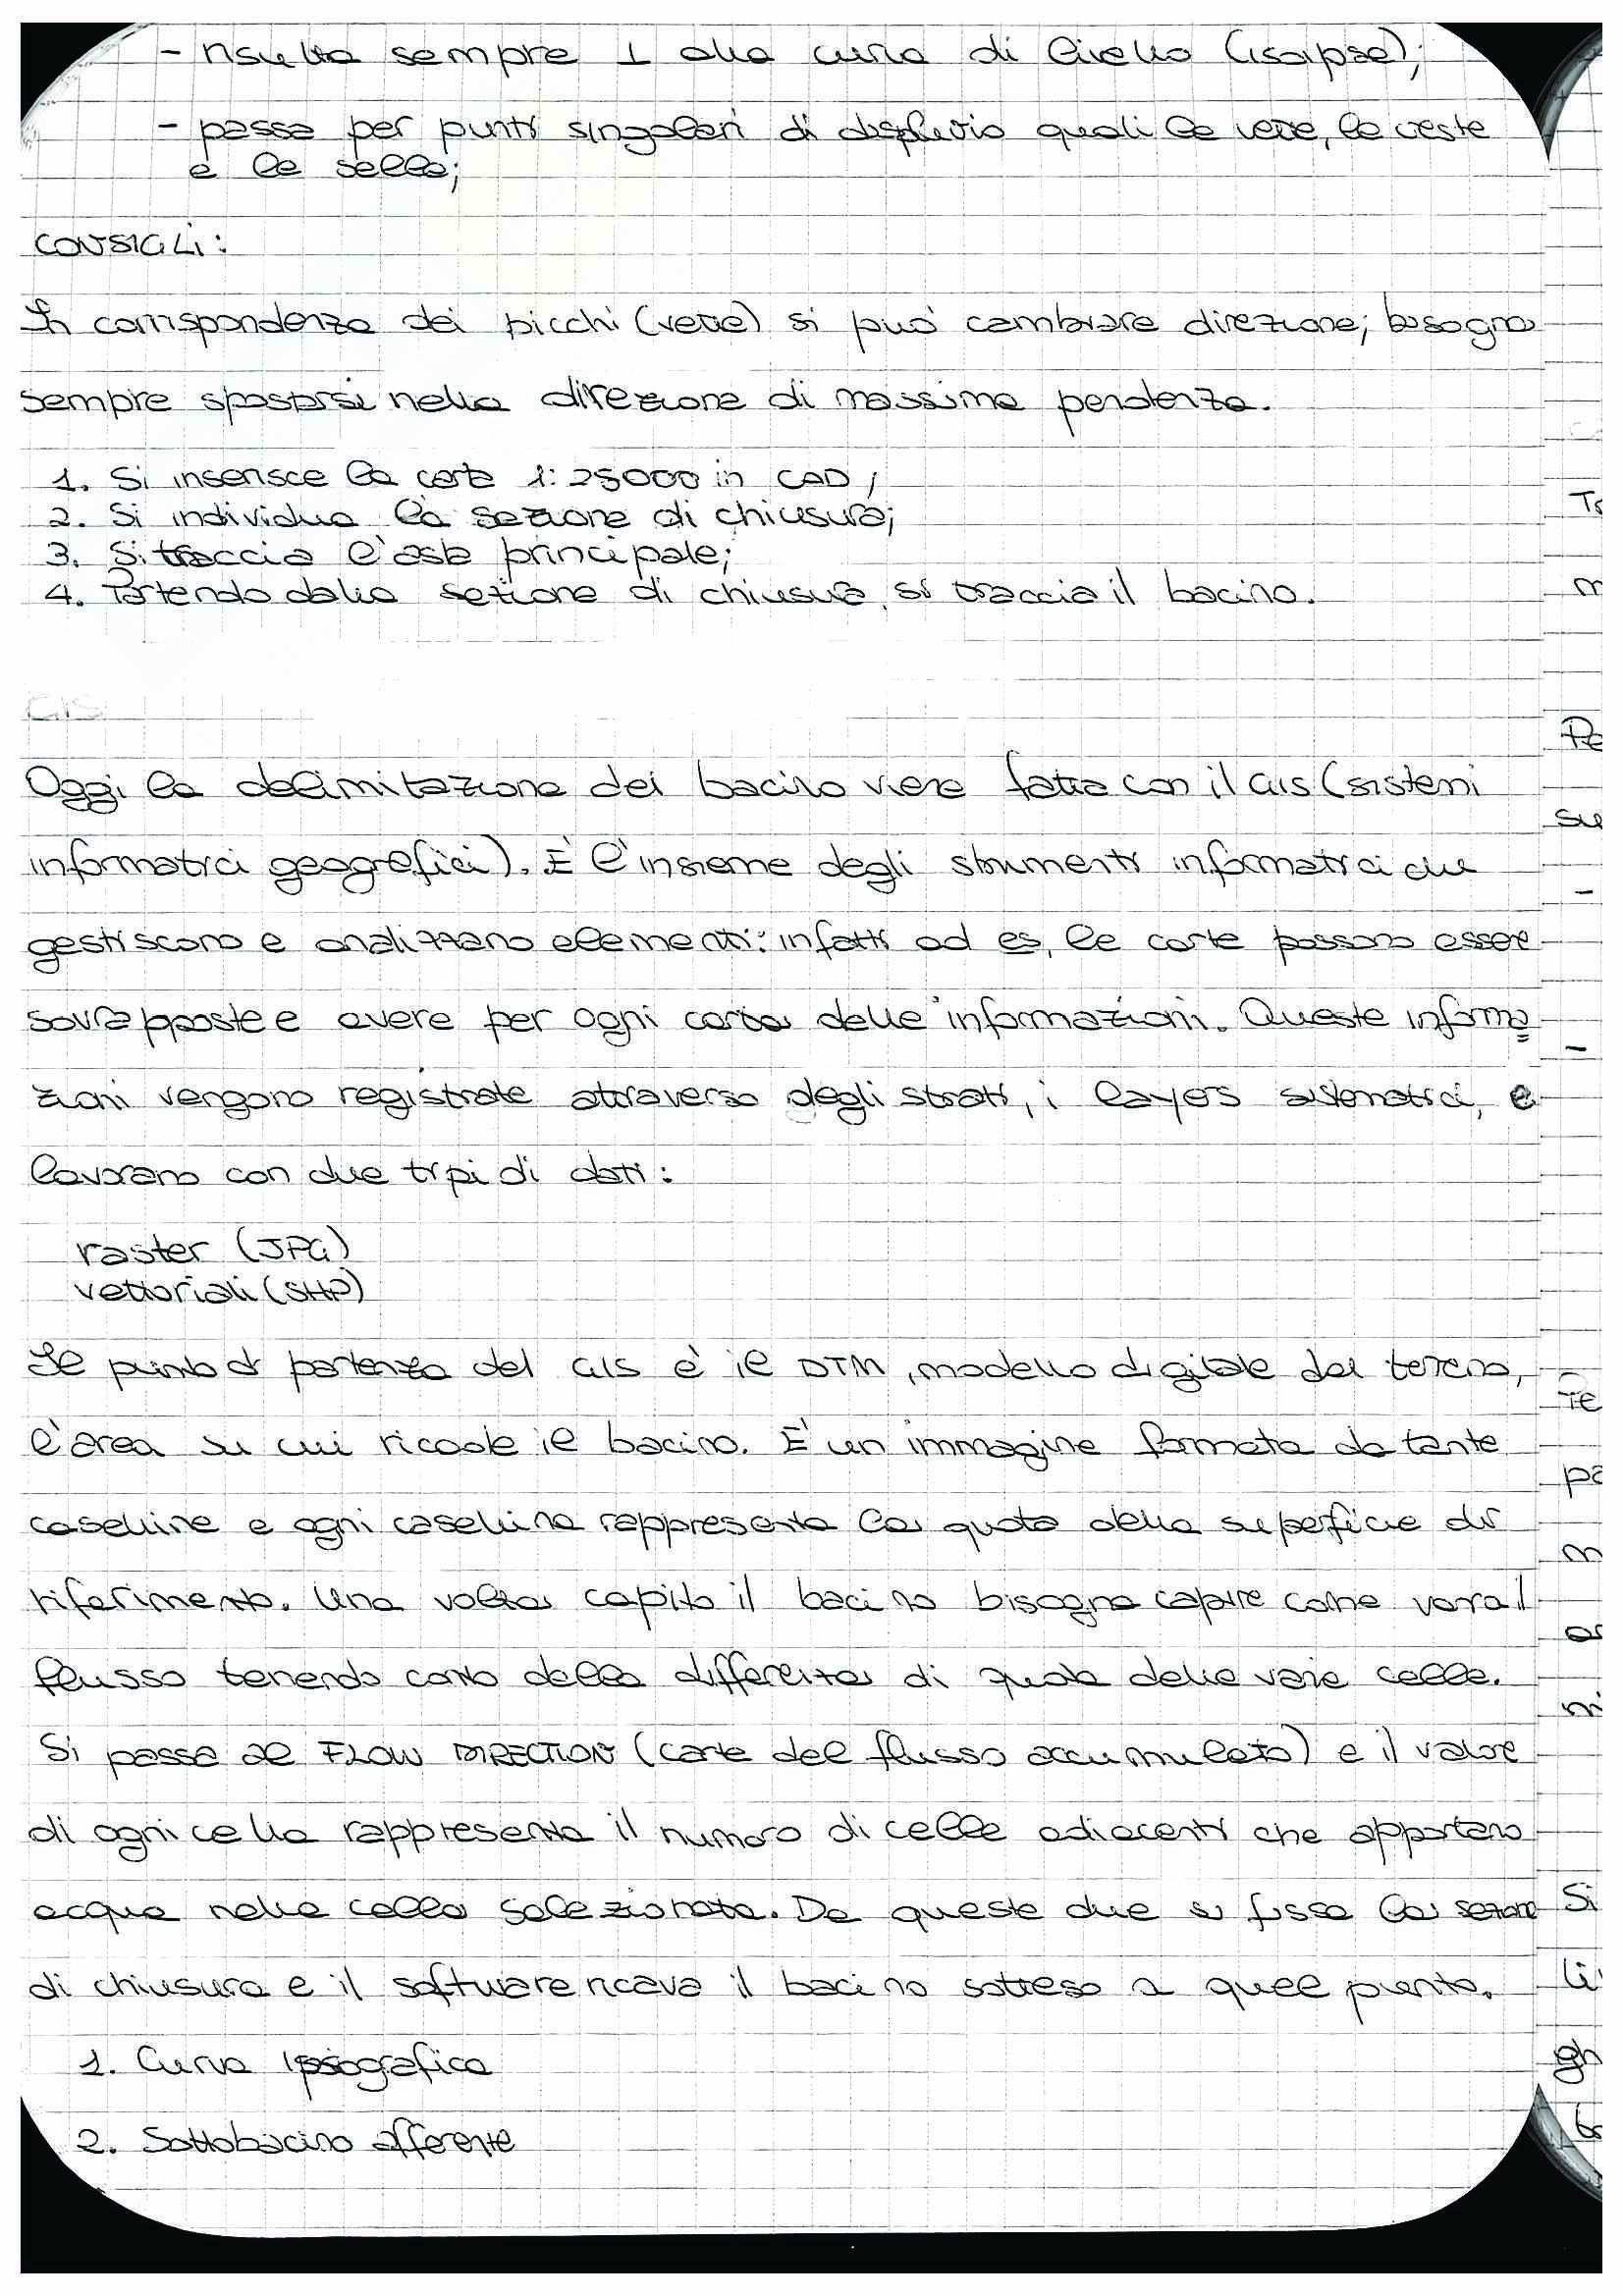 - risulta sempre ⊥ alla curva di livello (isoipse);
- passa per punti singolari di displuvio quali le vette, le creste
e le selle;
CONSIGLI:
In corrispondenza dei picchi (vette) si può cambiare direzione; bisogna
sempre spostarsi nella direzione di massima pendenza.
1. Si inserisce la carta 1:25000 in CAD;
2. Si individua la sezione di chiusura;
3. Si traccia l'asta principale;
4. Partendo dalla sezione di chiusura, si traccia il bacino.
GIS
Oggi la delimitazione del bacino viene fatta con il GIS (sistemi
informatici geografici). È l'insieme degli strumenti informatici che
gestiscono e analizzano elementi: infatti ad es, le carte possono essere
sovrapposte e avere per ogni carta delle informazioni. Queste informa
zioni vengono registrate attraverso degli strati, i layers sistematici, e
lavorano con due tipi di dati:
raster (JPG)
vettoriali (SHP)
Il punto di partenza del GIS è il DTM, modello digitale del terreno,
l'area su cui ricade il bacino. È un immagine formata da tante
caselline e ogni casellina rappresenta la quota della superficie di
riferimento. Una volta capito il bacino bisogna capire come varia il
flusso tenendo conto della differenza di quota delle varie celle.
Si passa al FLOW DIRECTION (carte del flusso accumulato) e il valore
di ogni cella rappresenta il numero di celle adiacenti che apportano
acqua nella cella selezionata. Da queste due si fissa la sezione
di chiusura e il software ricava il bacino sotteso a quel punto.
1. Curva ipsografica
2. Sottobacino afferente